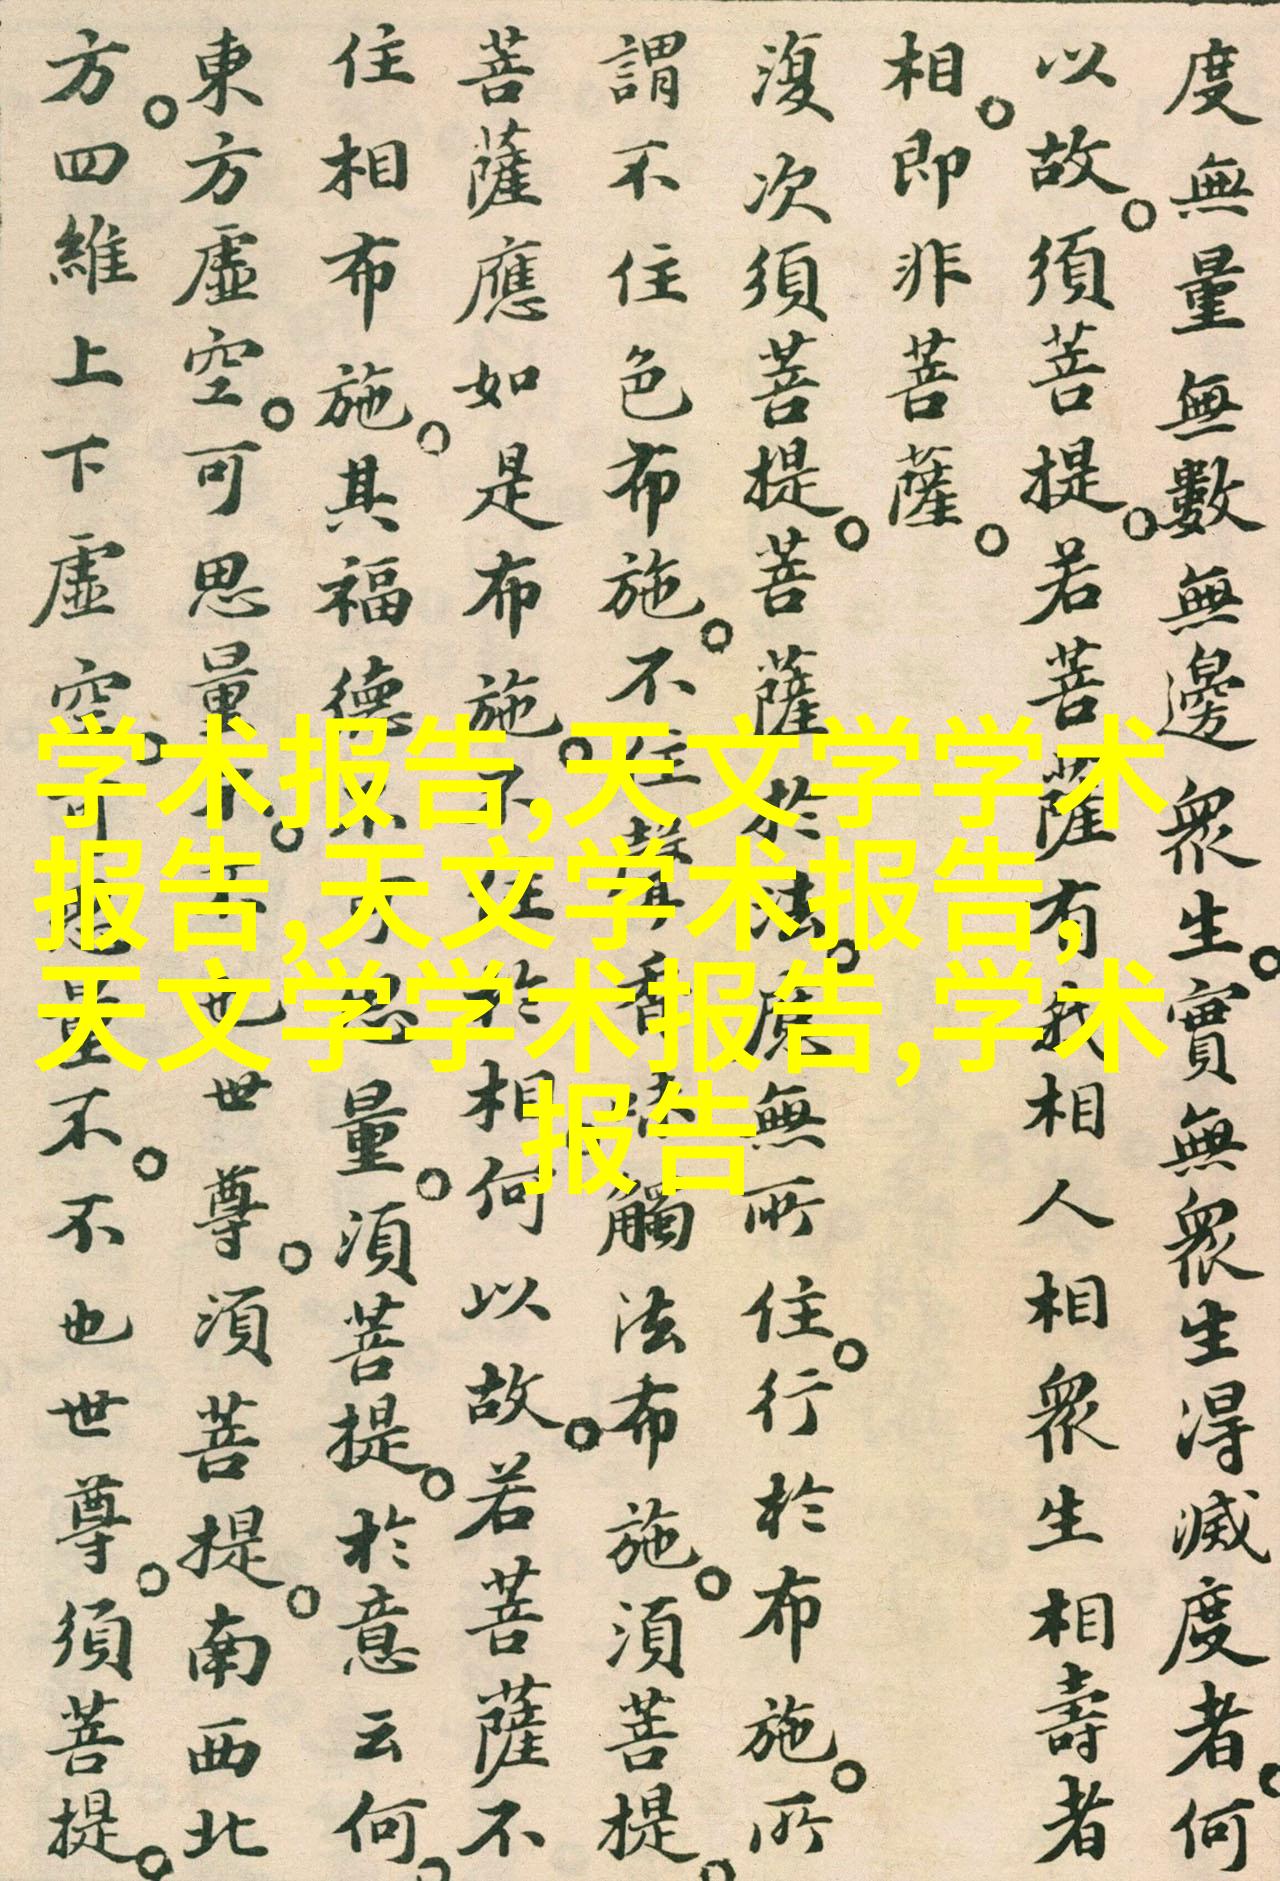 度無量無數無邊衆生。實無衆生得滅度者。何
以故。須菩提。若菩薩有我相人相衆生相壽者
相。即非菩薩。
復次須菩提。菩薩於法。應無所住。行於布施。所
謂不住色布施。不住聲香味觸法布施。須菩提。
菩薩應如是布施。不住於相。何以故。若菩薩不
住相布施。其福德不可思量。須菩提。於意云何。
東方虛空。可思量不。不也世尊。須菩提。南西北
方。四維上下虛空。可思量不。不也世尊。須菩提。
学术报告,天文学学术
报告,天文学术报告,
天文学学术报告,学术
报告